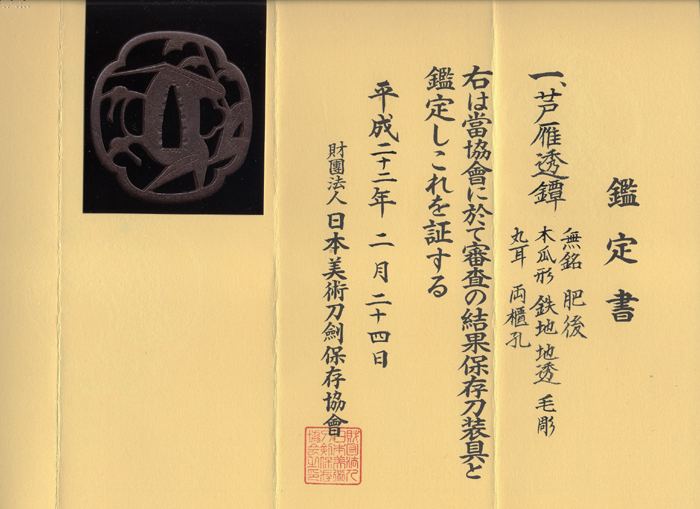 鑑定書
一、芦雁透鐔
無銘 肥後
木瓜形 鉄地 地透 毛彫
丸耳 両櫃孔
右は當協會に於て審査の結果保存刀装具と
鑑定しこれを証する
平成二十二年 二月二十四日
財團法人 日本美術刀劍保存協會